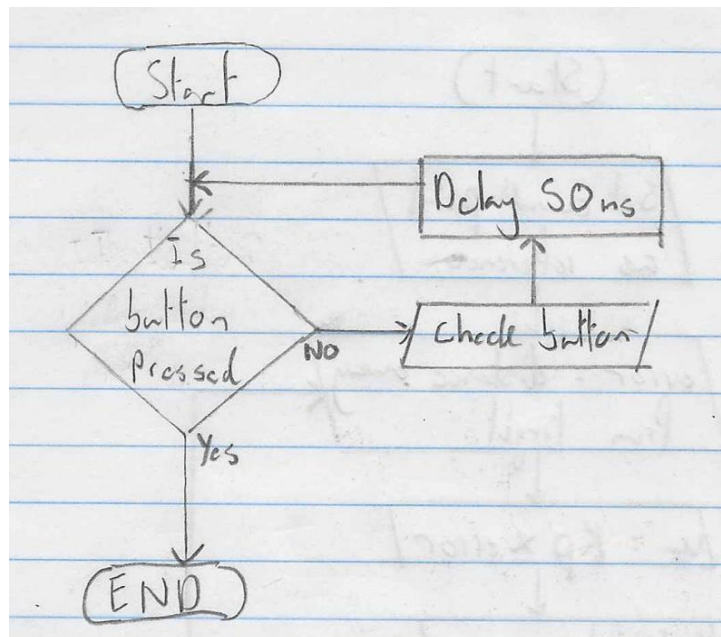 Start
Delay 50ms
Is
button
pressed
No
check button
Yes
END